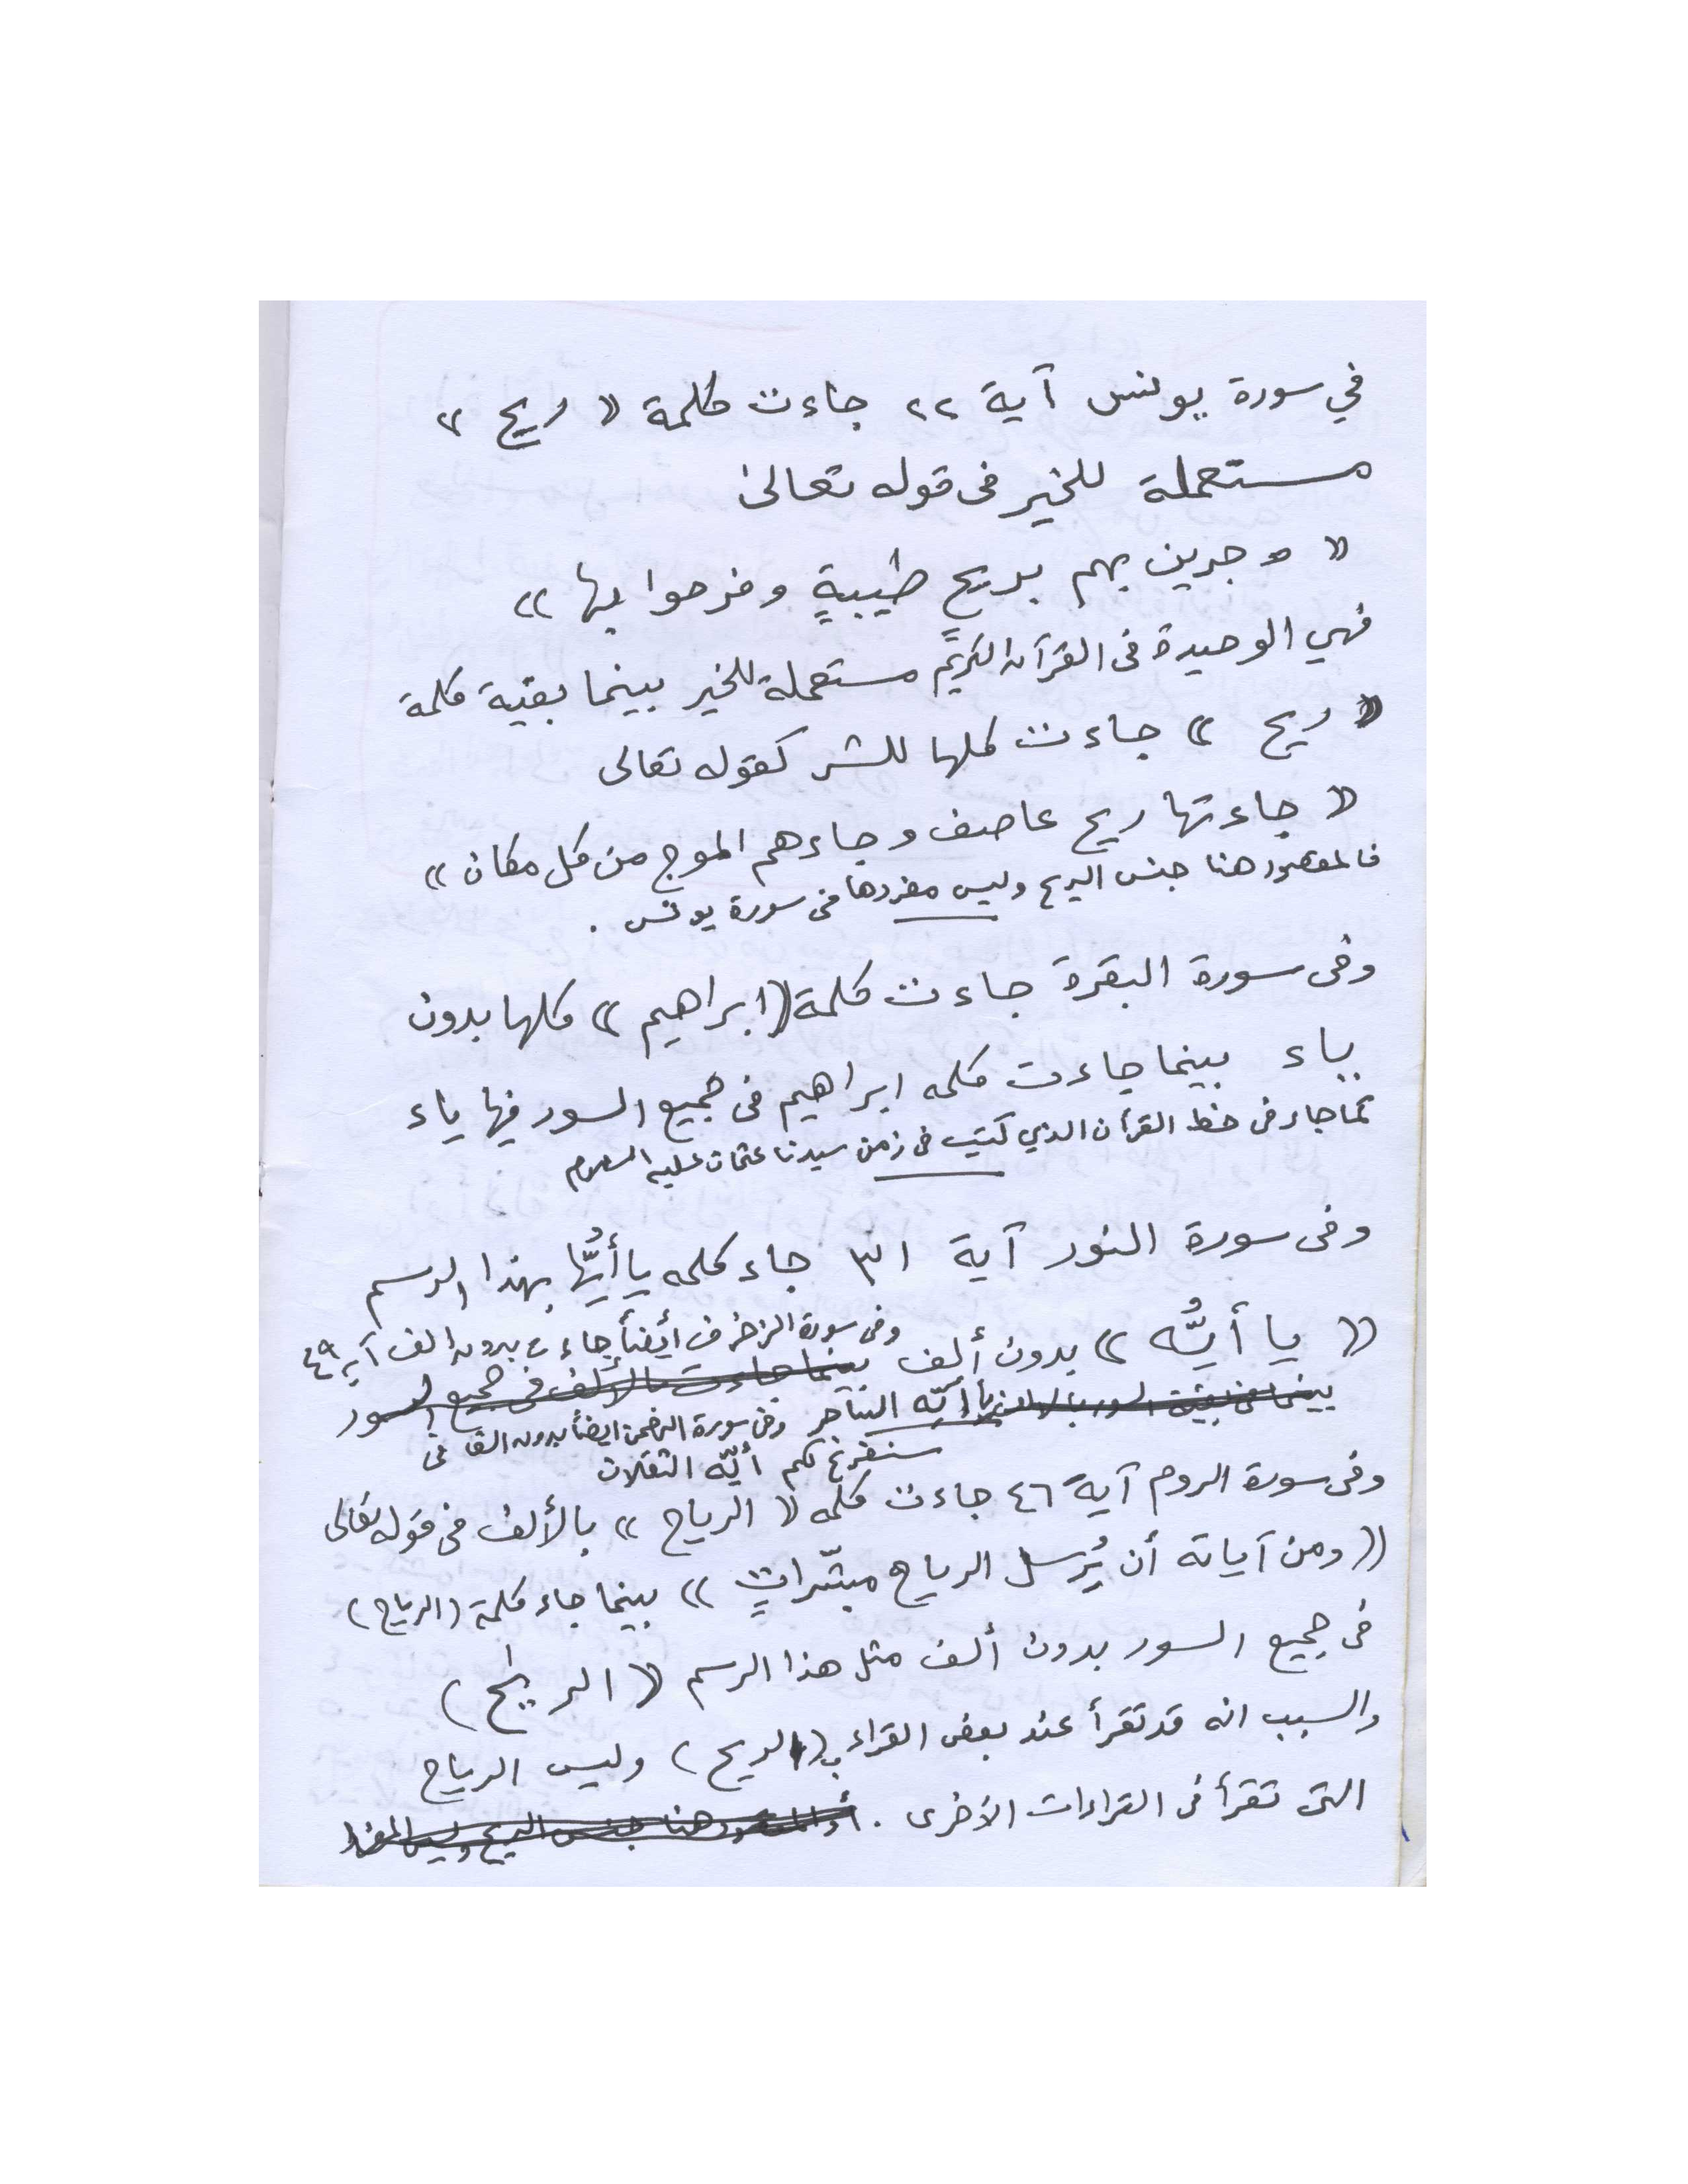 في سورة يونس آية ٢٢ جاءت كلمة « ريح »
مستعملة للخير فى قوله تعالى
« وجرين بهم بريحٍ طيبةٍ وفرحوا بها »
فهي الوحيدة فى القرآن الكريم مستعملة للخير بينما بقية كلمة
« ريح » جاءت كلها للشر كقوله تعالى
« جاءتها ريح عاصف وجاءهم الموج من كل مكان »
فالمقصود هنا جنس الريح وليس مفردها فى سورة يونس .
وفى سورة البقرة جاءت كلمة «ابراهيم» كلها بدون
ياء بينما جاءت كلمه ابراهيم فى جميع السور فيها ياء
كما جاء فى خط القرآن الذي كتب فى زمن سيدنا عثمان عليه السلام
وفى سورة النور آية ٣١ جاء كلمه يا أيُّها بهذا الرسم
« يا أيُّه » بدون ألف وفى سورة الزخرف أيضاً جاءت بدون الف آية ٤٩
بينما جاءت بالألف فى جميع السور
بينما فى بقية السور بالالف يا أيّه الساحر وفى سورة الرحمن ايضاً بدون الف فى
سنفرغ لكم أيّه الثقلان
وفى سورة الروم آية ٤٦ جاءت كلمه « الرياح » بالألف فى قوله تعالى
«ومن آياته أن يُرسل الرياح مبشّراتٍ » بينما جاء كلمة (الرياح)
فى جميع السور بدون ألف مثل هذا الرسم ( الريٰح )
والسبب انه قد تقرأ عند بعض القراء ب(الريح) وليس الرياح
التى تقرأ فى القراءات الأخرى . أو المقصود هنا جنس الريح وليس المفرد